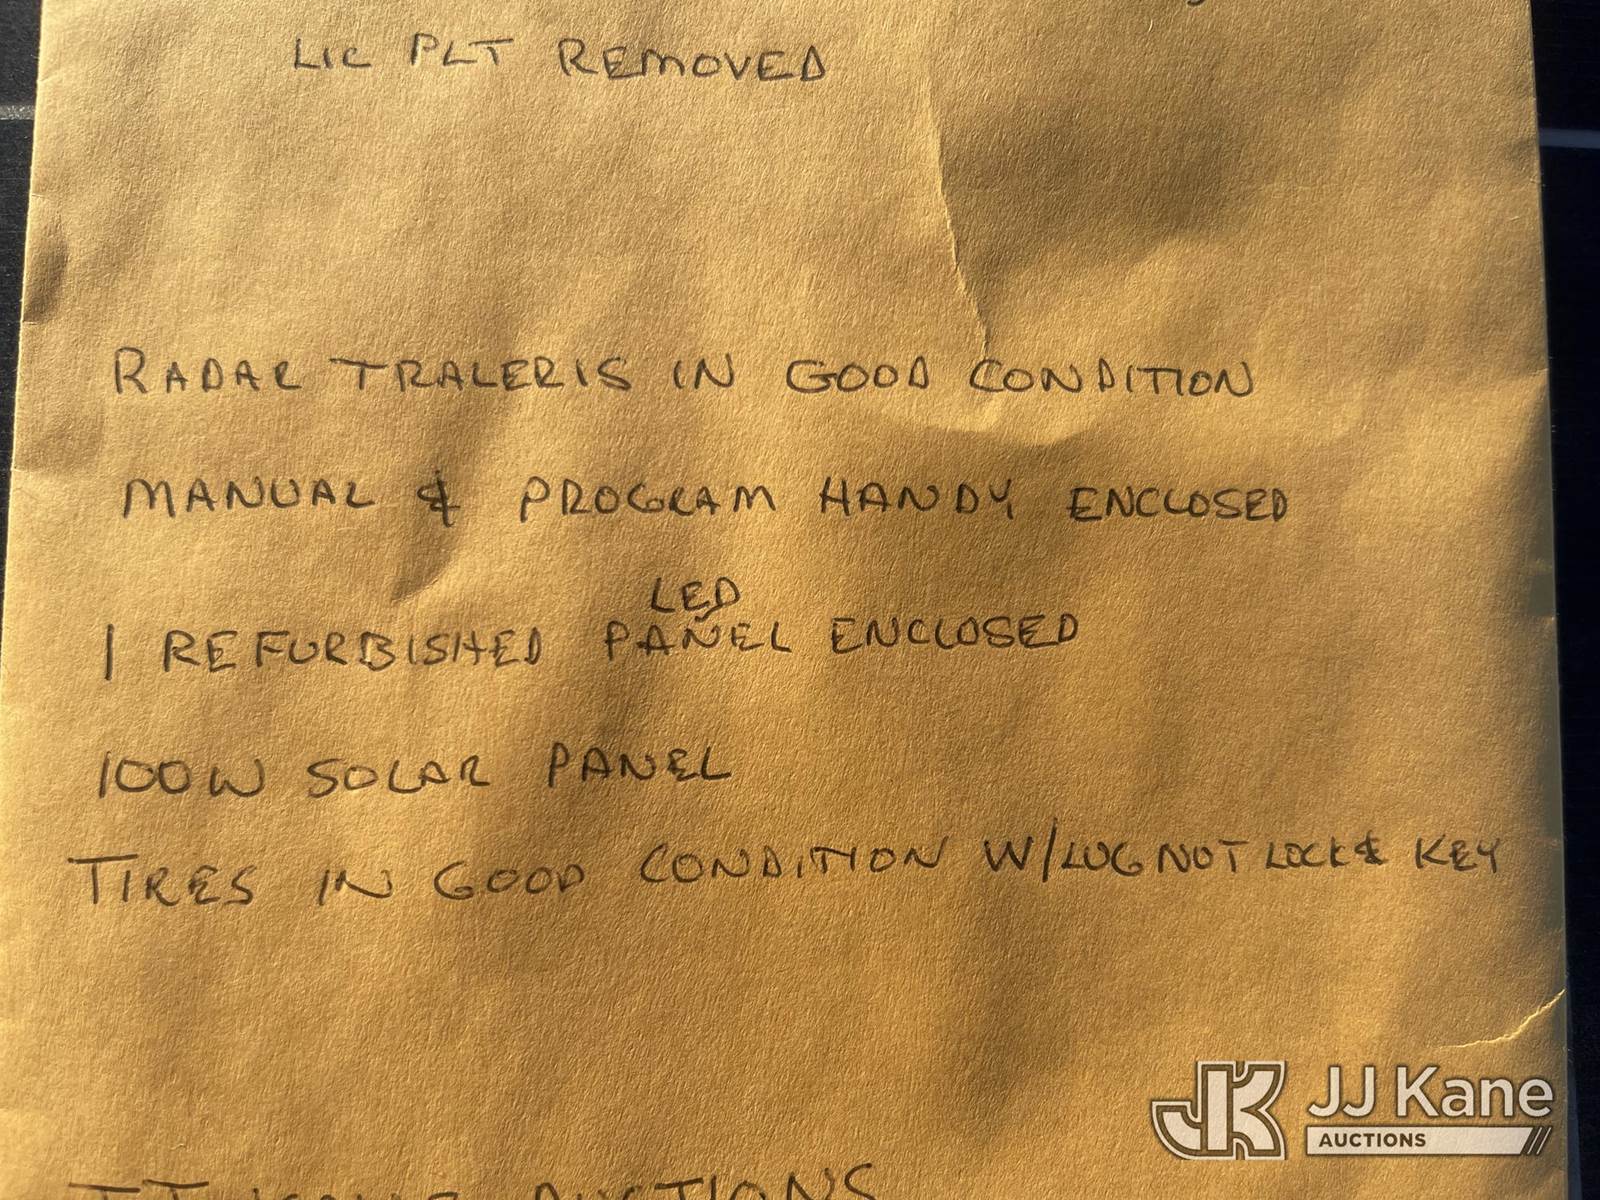 LIC PLT REMOVED
RADAR TRALERIS IN GOOD CONDITION
MANUAL & PROGRAM HANDY ENCLOSED
LED
1 REFURBISHED PANEL ENCLOSED
100W SOLAR PANEL
TIRES IN GOOD CONDITION W/LUG NOT LOCK & KEY
AUCTIONS
JJ Kane
AUCTIONS